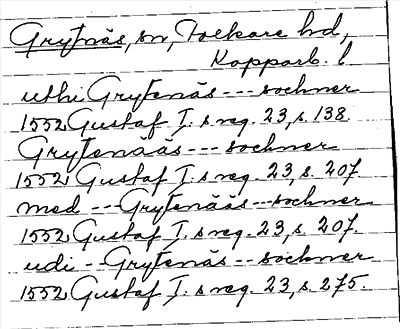 Grytnäs, sn, Folkare hd,
Kopparb. l.
uthi Grytenäs --- sochner
1552 Gustaf I:s reg. 23, s. 138.
Grytenääs --- sochner
1552 Gustaf I:s reg. 23, s. 207
med --- Grytenääs --- sochner
1552 Gustaf I:s reg. 23, s. 207.
udi -- Grytenäs --- sochner
1552 Gustaf I:s reg. 23, s. 275.